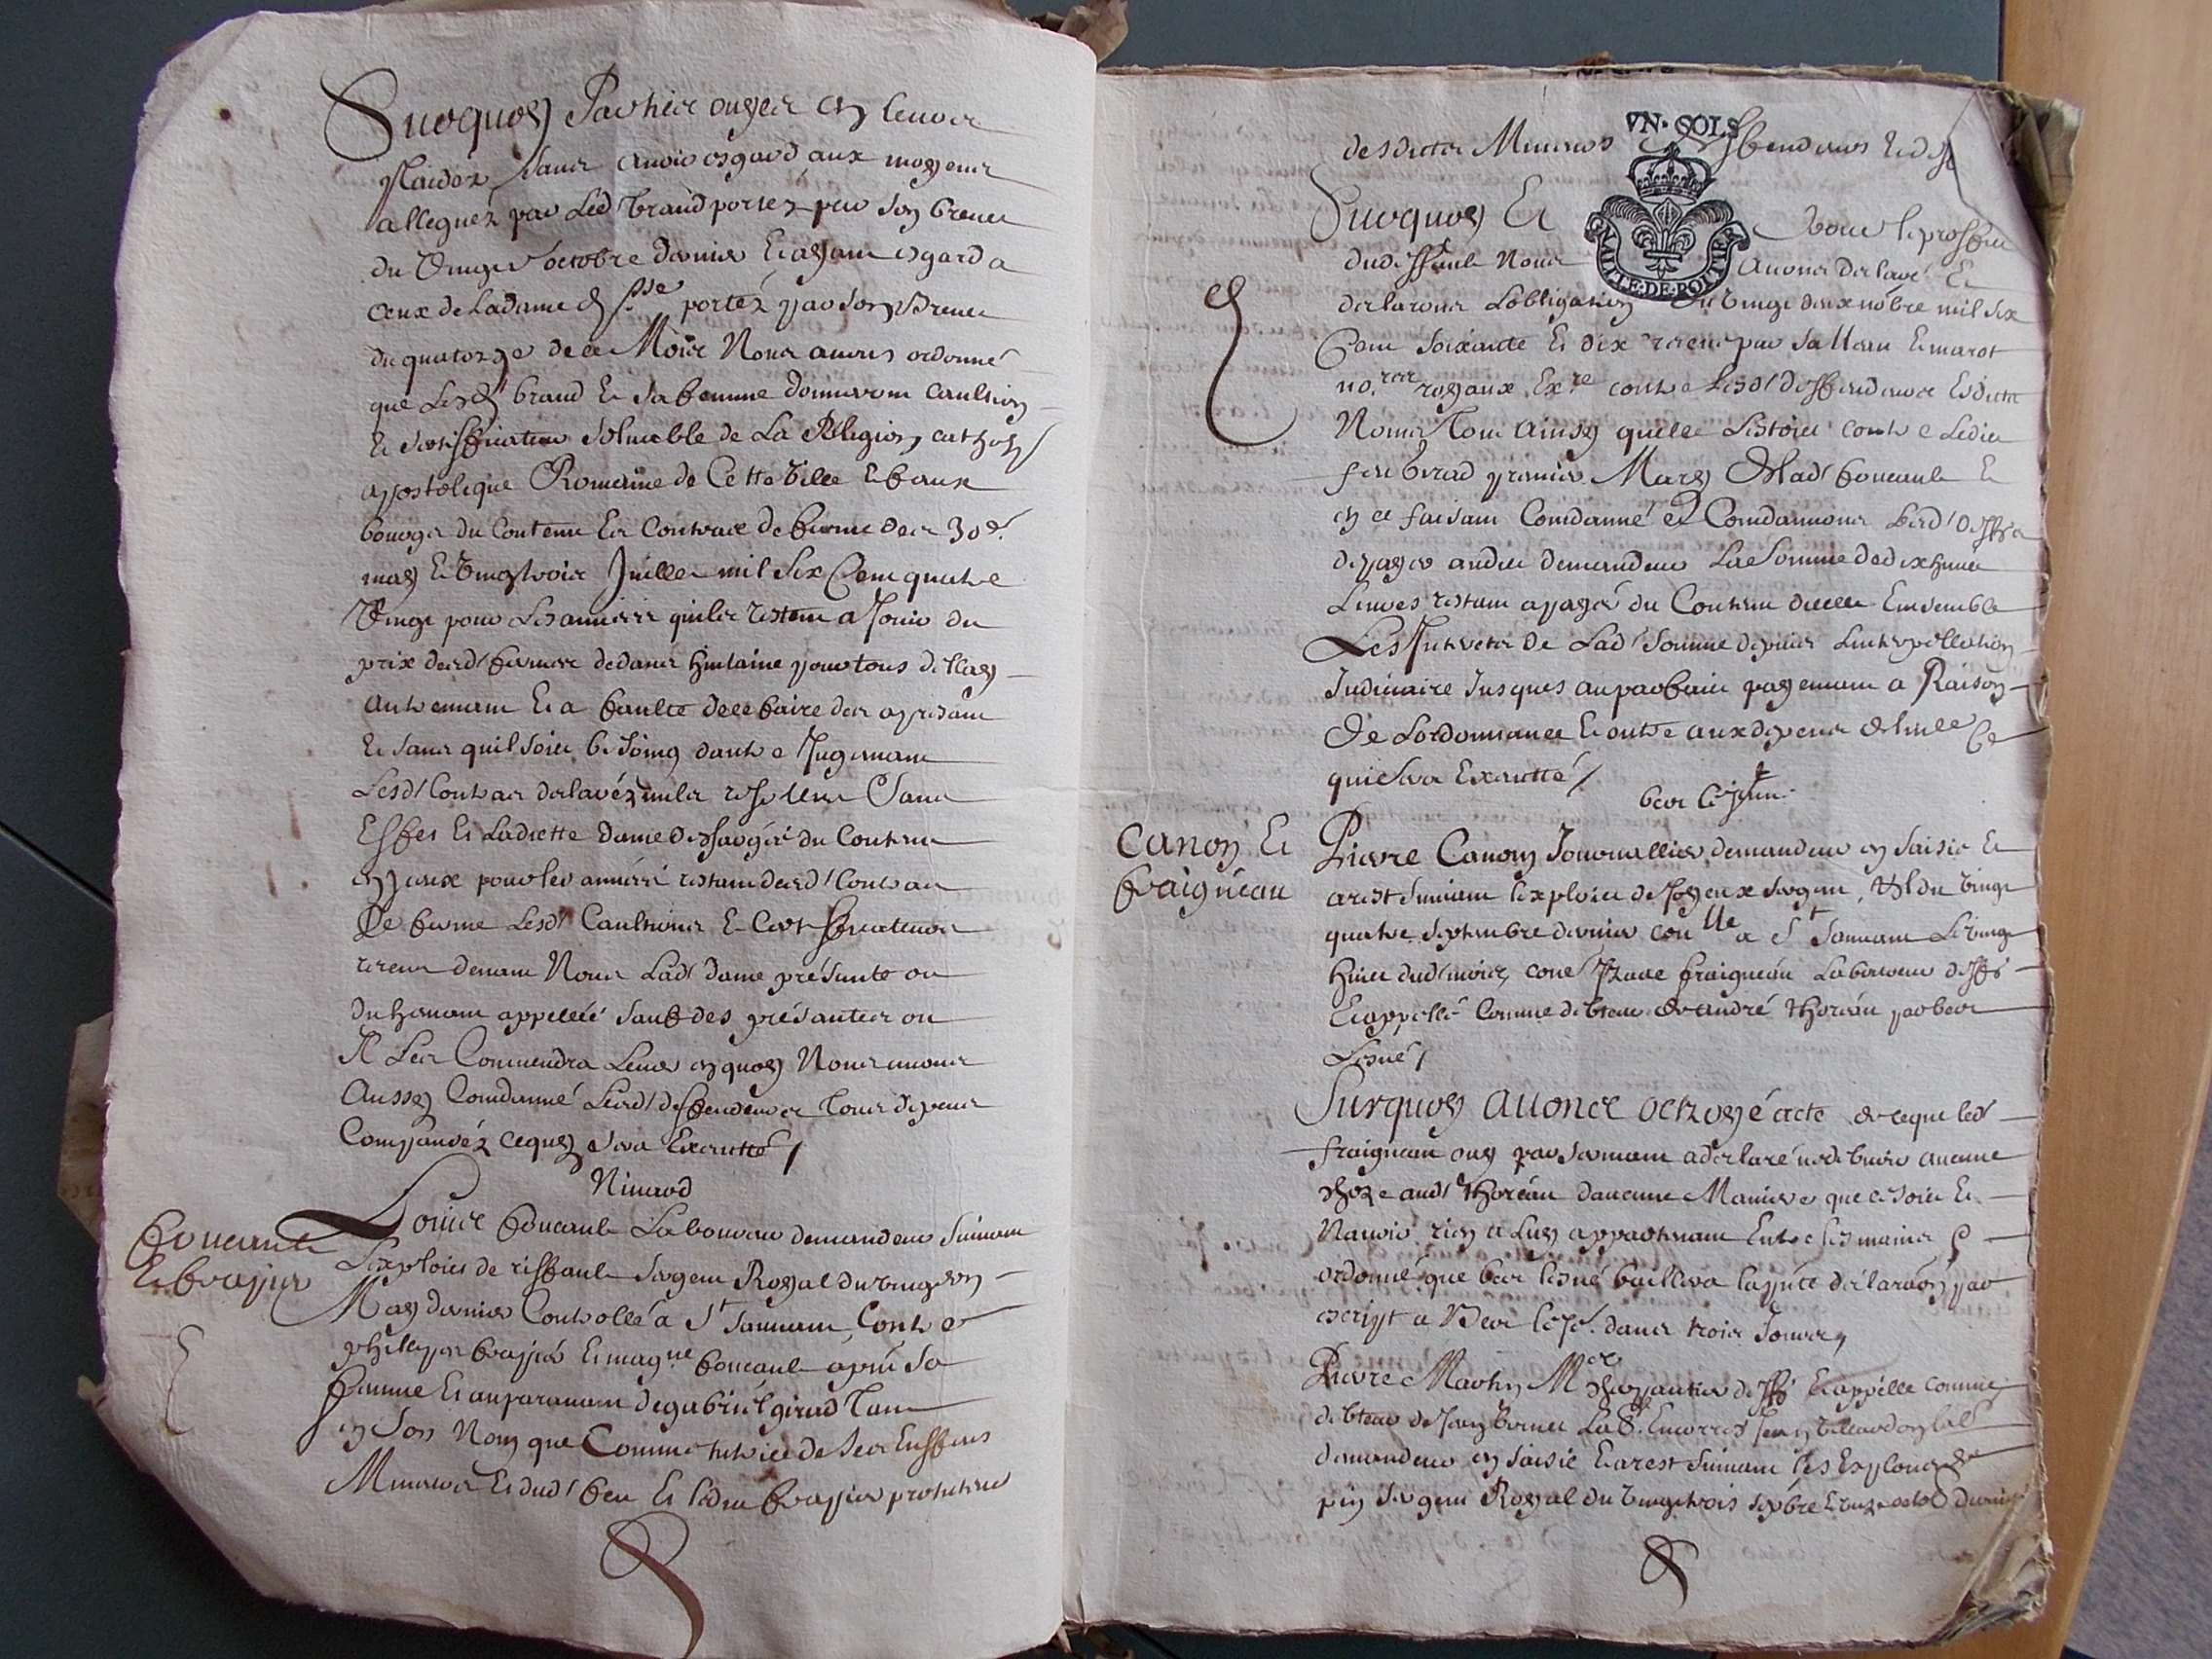 Surquoy Parties ouyes en leurs
plaidez sans avoir esgard aux moyens
alleguez par led' braud portez par son brevet
du vingt octobre dernier et ayant esgard a
ceux de Ladame portez par son Brevet
du quatorze de ce Mois Nous avons ordonné
que Lesd' braud et sa femme donneront caultion
et sertifficateur solvable de La Religion cathol
appostolique Romaine de Cette ville et faux
bourgs du Contenu es Contract de ferme des 30e
may et vingtrois Juillet mil six Cent quatre
vingt pour Les années quiles restent a Jouir du
prix desd' fermes dedans huitaine pour tous dellay
autrement et a faulte de ce faire des apresant
et sans quil soit besoing dautre Jugement
Lesd' Contract declarés nuls resolus sans
Effet et Ladiette dame deschargée du Contenu
en yceux pour les années restant desd' Contract
De ferme Lesd' Caultions et Certifficateurs
receus devant Nous Lad' dame présante ou
duhement appellée sauf des présanter ou
Il Les Conviendra Lever enquoy Nous avons
Aussy Comdanné Lesd' deffendeurs Tous depens
Compansés cequy sera Executté /
Nimaud
Foucault
et frappier
Louis foucault Laboureur demandeur suivant
Lexploict de riffault sergent Royal du vingt
May dernier Controllé a St Jauvant, Contre
phillipes frappier et magne foucault apnt sa
femme et auparavant de gabriel girad Tant
en son Nom que Comme tutrice de ses Enffens
Mineurs et dud' feu et ledit frappier protuteur
desdits Mineurs deffendeurs
VN·SOLS
Surquoy Et
pour le proffit
VILLE·DE·POITIER
dudeffault Nous Avons declaré Et
declarons Lobligation du vingt deux nobre mil six
Cent soixante et dix receue par salleau et marot
nores royaux Exre contre Lesd' deffendeurs Esdits
Noms Tout Ainsy quelle Lestoit contre Ledit
feu Girad premier Mary de lad' foucault Et
en ce faisant Comdanné et Comdannons Lesd' deffrs
de payer audit demandeur La somme de dix huit
Livres restant a payer du Contenu dicelle Ensemble
Les Intretz de Lad' somme depuis Linterpellation
Judiciaire Jusques auparfaict payement a Raison
De Lordonnance et outre aux depens
qui sera Executté /
Canon Et
fraigneau
Pierre Canon Journallier demandeur en saisie Et
arest suivant lexploict de Joyeux sergent, du vingt
quatre septembre dernier conlle a St Jauvant Le vingt
huit dud' mois, cone fraigneau Laboureur deffr
Et appellé Comme debteur de andré thoreau par
Lesné /
Surquoy avons octroyé acte de ce que led'
fraigneau ouy par serment a declaré ne debvoir aucune
choze aud' thoreau daucune Maniere que ce soit Et
Navoir rien a Luy appartenant Entre ses mains
ordonné que lesné baillera la pnte declaraon par
escript a dans trois Jours
Pierre Martin Md deffr Et appellé comme
debteur de
demandeur en saisie Et arest suivant les Exploicts de
pin sergent Royal du vingtrois sepbre et dernier